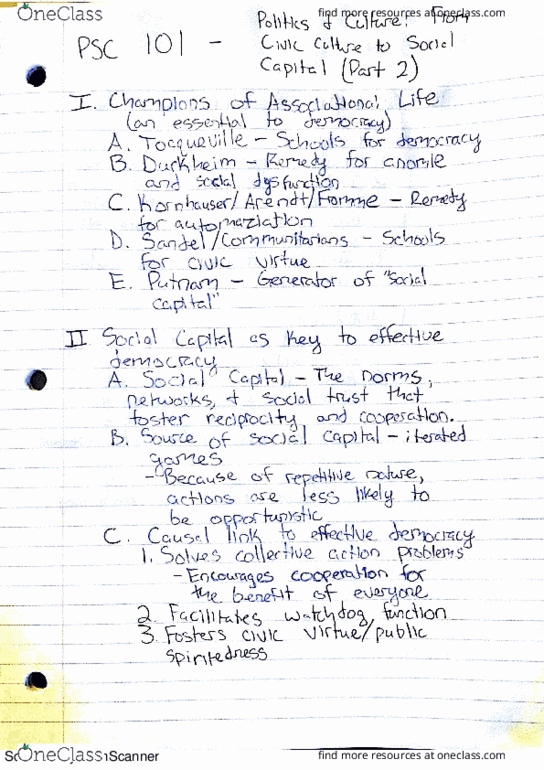 OneClass
find more resources at oneclass.com
Politics & Culture: From
PSC 101 - Civic Culture to Social
Capital (Part 2)
I. Champions of Associational Life
(an essential to democracy)
A. Tocqueville - Schools for democracy
B. Durkheim - Remedy for anomie
and social dysfunction
C. Kornhauser/Arendt/Fromme - Remedy
for automaziation
D. Sandel/Communitarians - Schools
for civic virtue
E. Putnam - Generator of "social
capital"
II Social Capital as key to effective
democracy
A. Social Capital - The norms,
networks, & social trust that
foster reciprocity and cooperation.
B. Source of social capital - iterated
games
- Because of repetitive nature,
actions are less likely to
be opportunistic
C. Causal link to effective democracy
1. Solves collective action problems
- Encourages cooperation for
the benefit of everyone
2. Facilitates watchdog function
3. Fosters civic virtue/public
spiritedness
OneClass Scanner
find more resources at oneclass.com